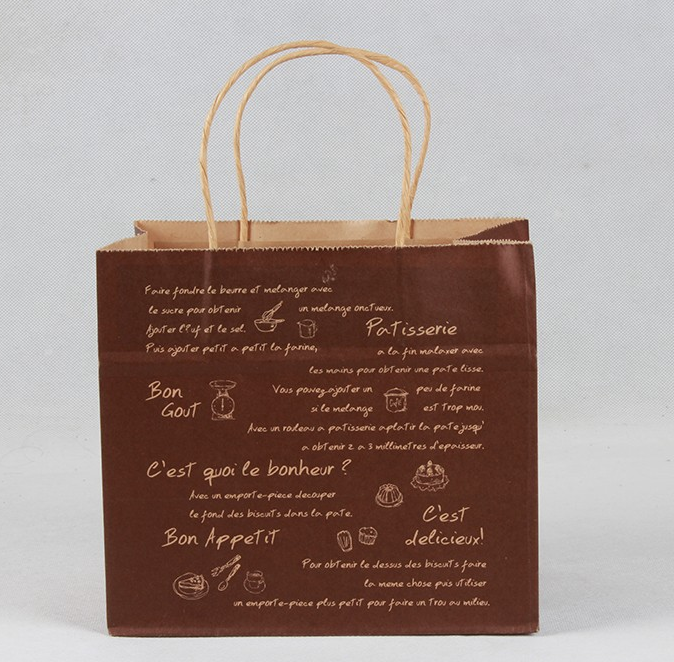 Faire fondre le beurre et melanger avec
le sucre pour obtenir un melange onctueux.
Ajouter l'?uf et le sel. Patisserie
Puis ajouter petit a petit la farine, a la fin malaxer avec
les mains pour obtenir une pate lisse.
Bon Gout
Vous pouvez ajouter un peu de farine
si le melange CAFE est trop mou.
Avec un rouleau a patisserie aplatir la pate jusqu'
a obtenir 2 a 3 millimetres d'epaisseur.
C'est quoi le bonheur ?
Avec un emporte-piece decouper
le fond des biscuits dans la pate.
C'est
delicieux!
Bon Appetit
Pour obtenir le dessus des biscuits faire
la meme chose puis utiliser
un emporte-piece plus petit pour faire un trou au milieu.